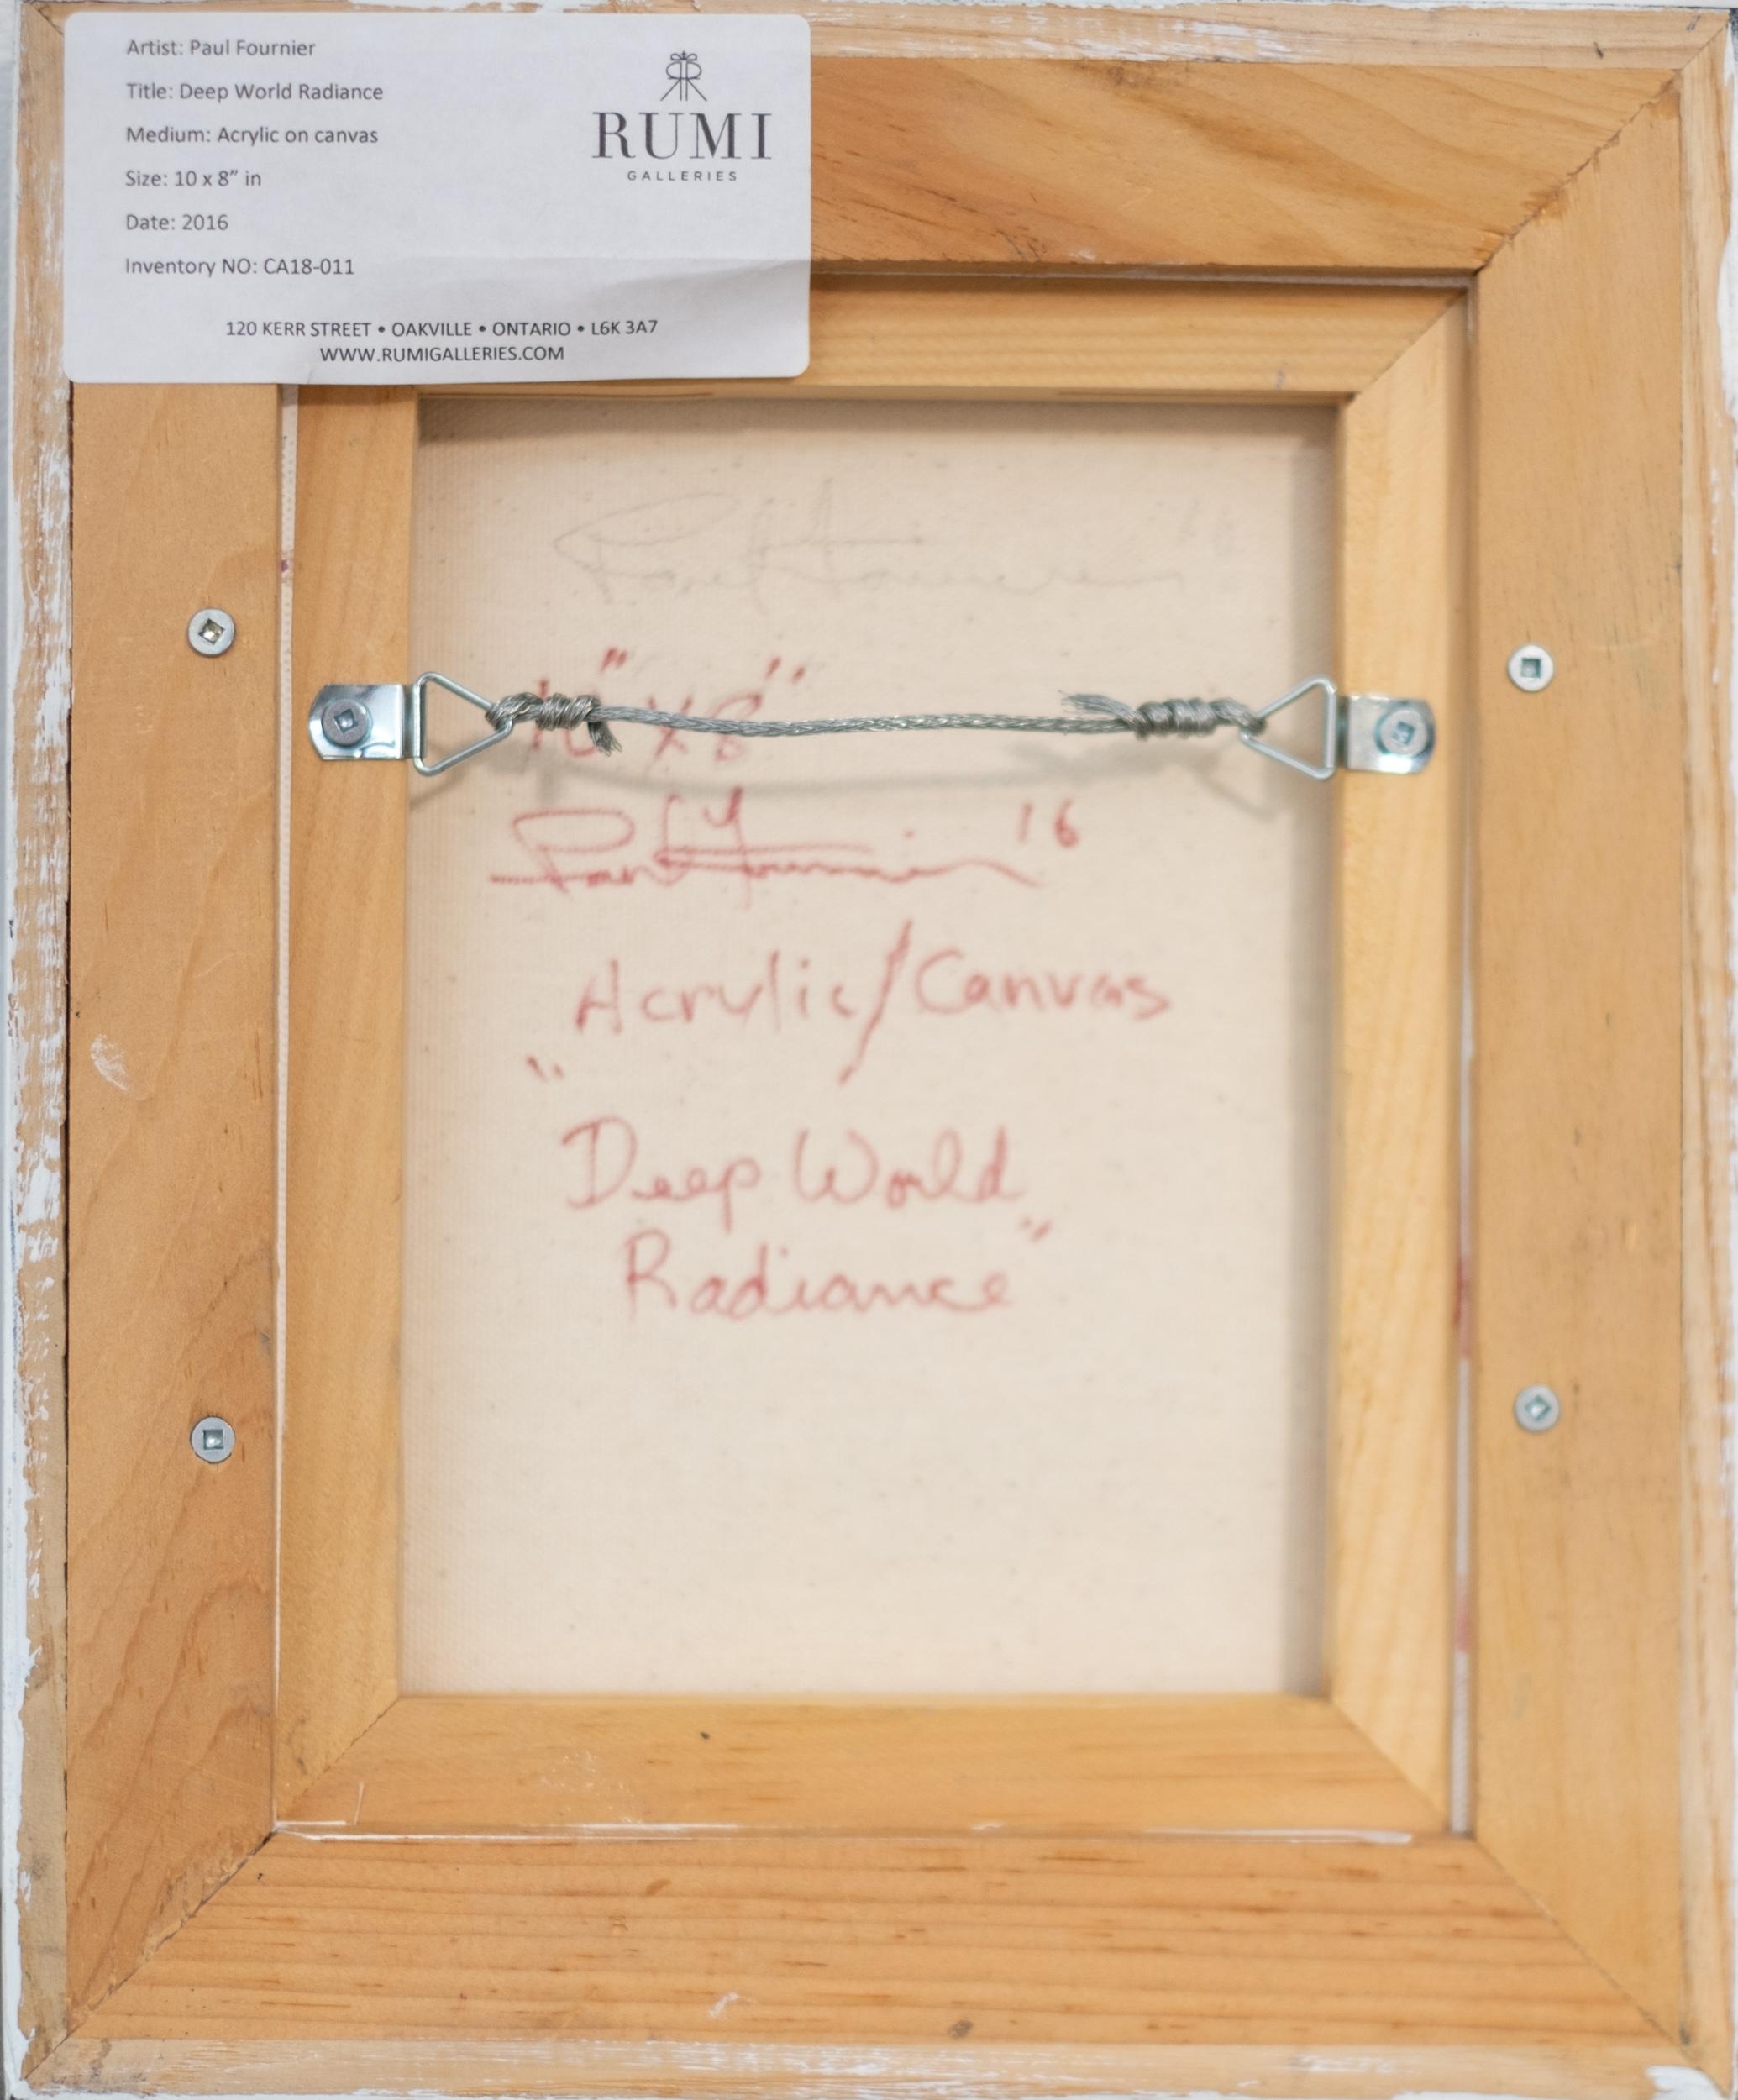 Artist: Paul Fournier
Title: Deep World Radiance
Medium: Acrylic on canvas
Size: 10 x 8” in
Date: 2016
Inventory NO: CA18-011
RUMI
GALLERIES
120 KERR STREET • OAKVILLE • ONTARIO • L6K 3A7
WWW.RUMIGALLERIES.COM
Paul Fournier
10" x 8"
Paul Fournier 16
Acrylic/Canvas
"Deep World
Radiance"